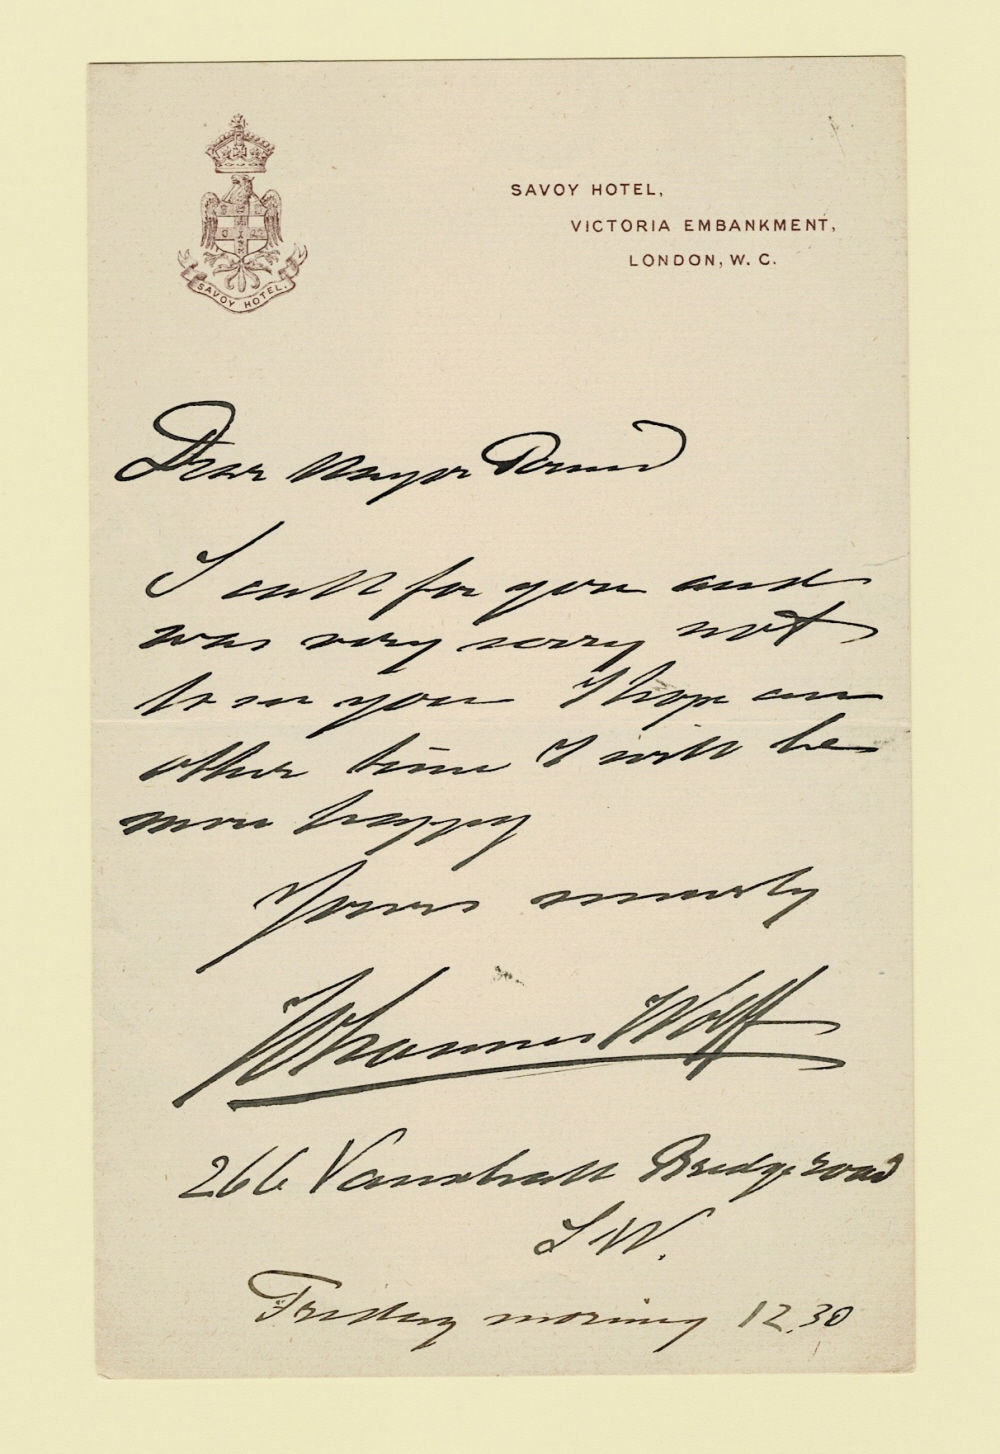 SAVOY HOTEL.
SAVOY HOTEL,
VICTORIA EMBANKMENT,
LONDON, W. C.
Dear Mayor
I call for you and
was very sorry not
to see you I hope an
other time I will be
more happy
Yours
Johannes Wolff
266 Vauxhall Bridge road
S W.
Friday morning 12.30